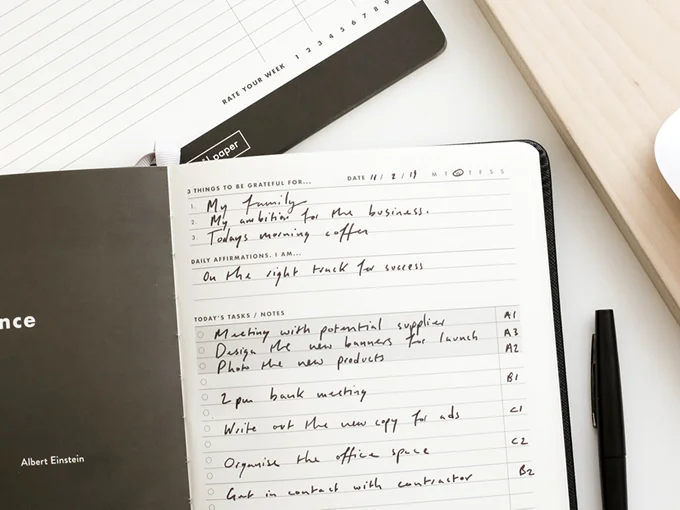 RATE YOUR WEEK 1 2 3 4 5 6 7 8 9
paper
3 THINGS TO BE GRATEFUL FOR... DATE 11 / 2 / 19 M T W T F S S
1. My family
2. My ambition for the business.
3. Todays morning coffee
DAILY AFFIRMATIONS. I AM...
On the right track for success
TODAY'S TASKS / NOTES
Meeting with potential supplier A1
Design the new banners for launch A3
Photo the new products A2
2pm bank meeting B1
Write out the new copy for ads C1
Organise the office space C2
Get in contact with contractor B2
nce
Albert Einstein